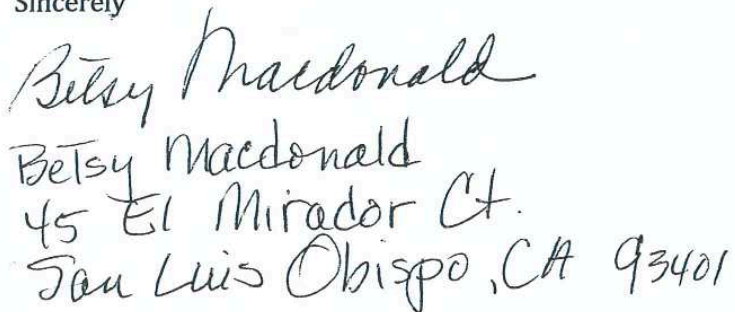 Sincerely
Betsy Macdonald
Betsy Macdonald
45 El Mirador Ct.
San Luis Obispo, CA 93401